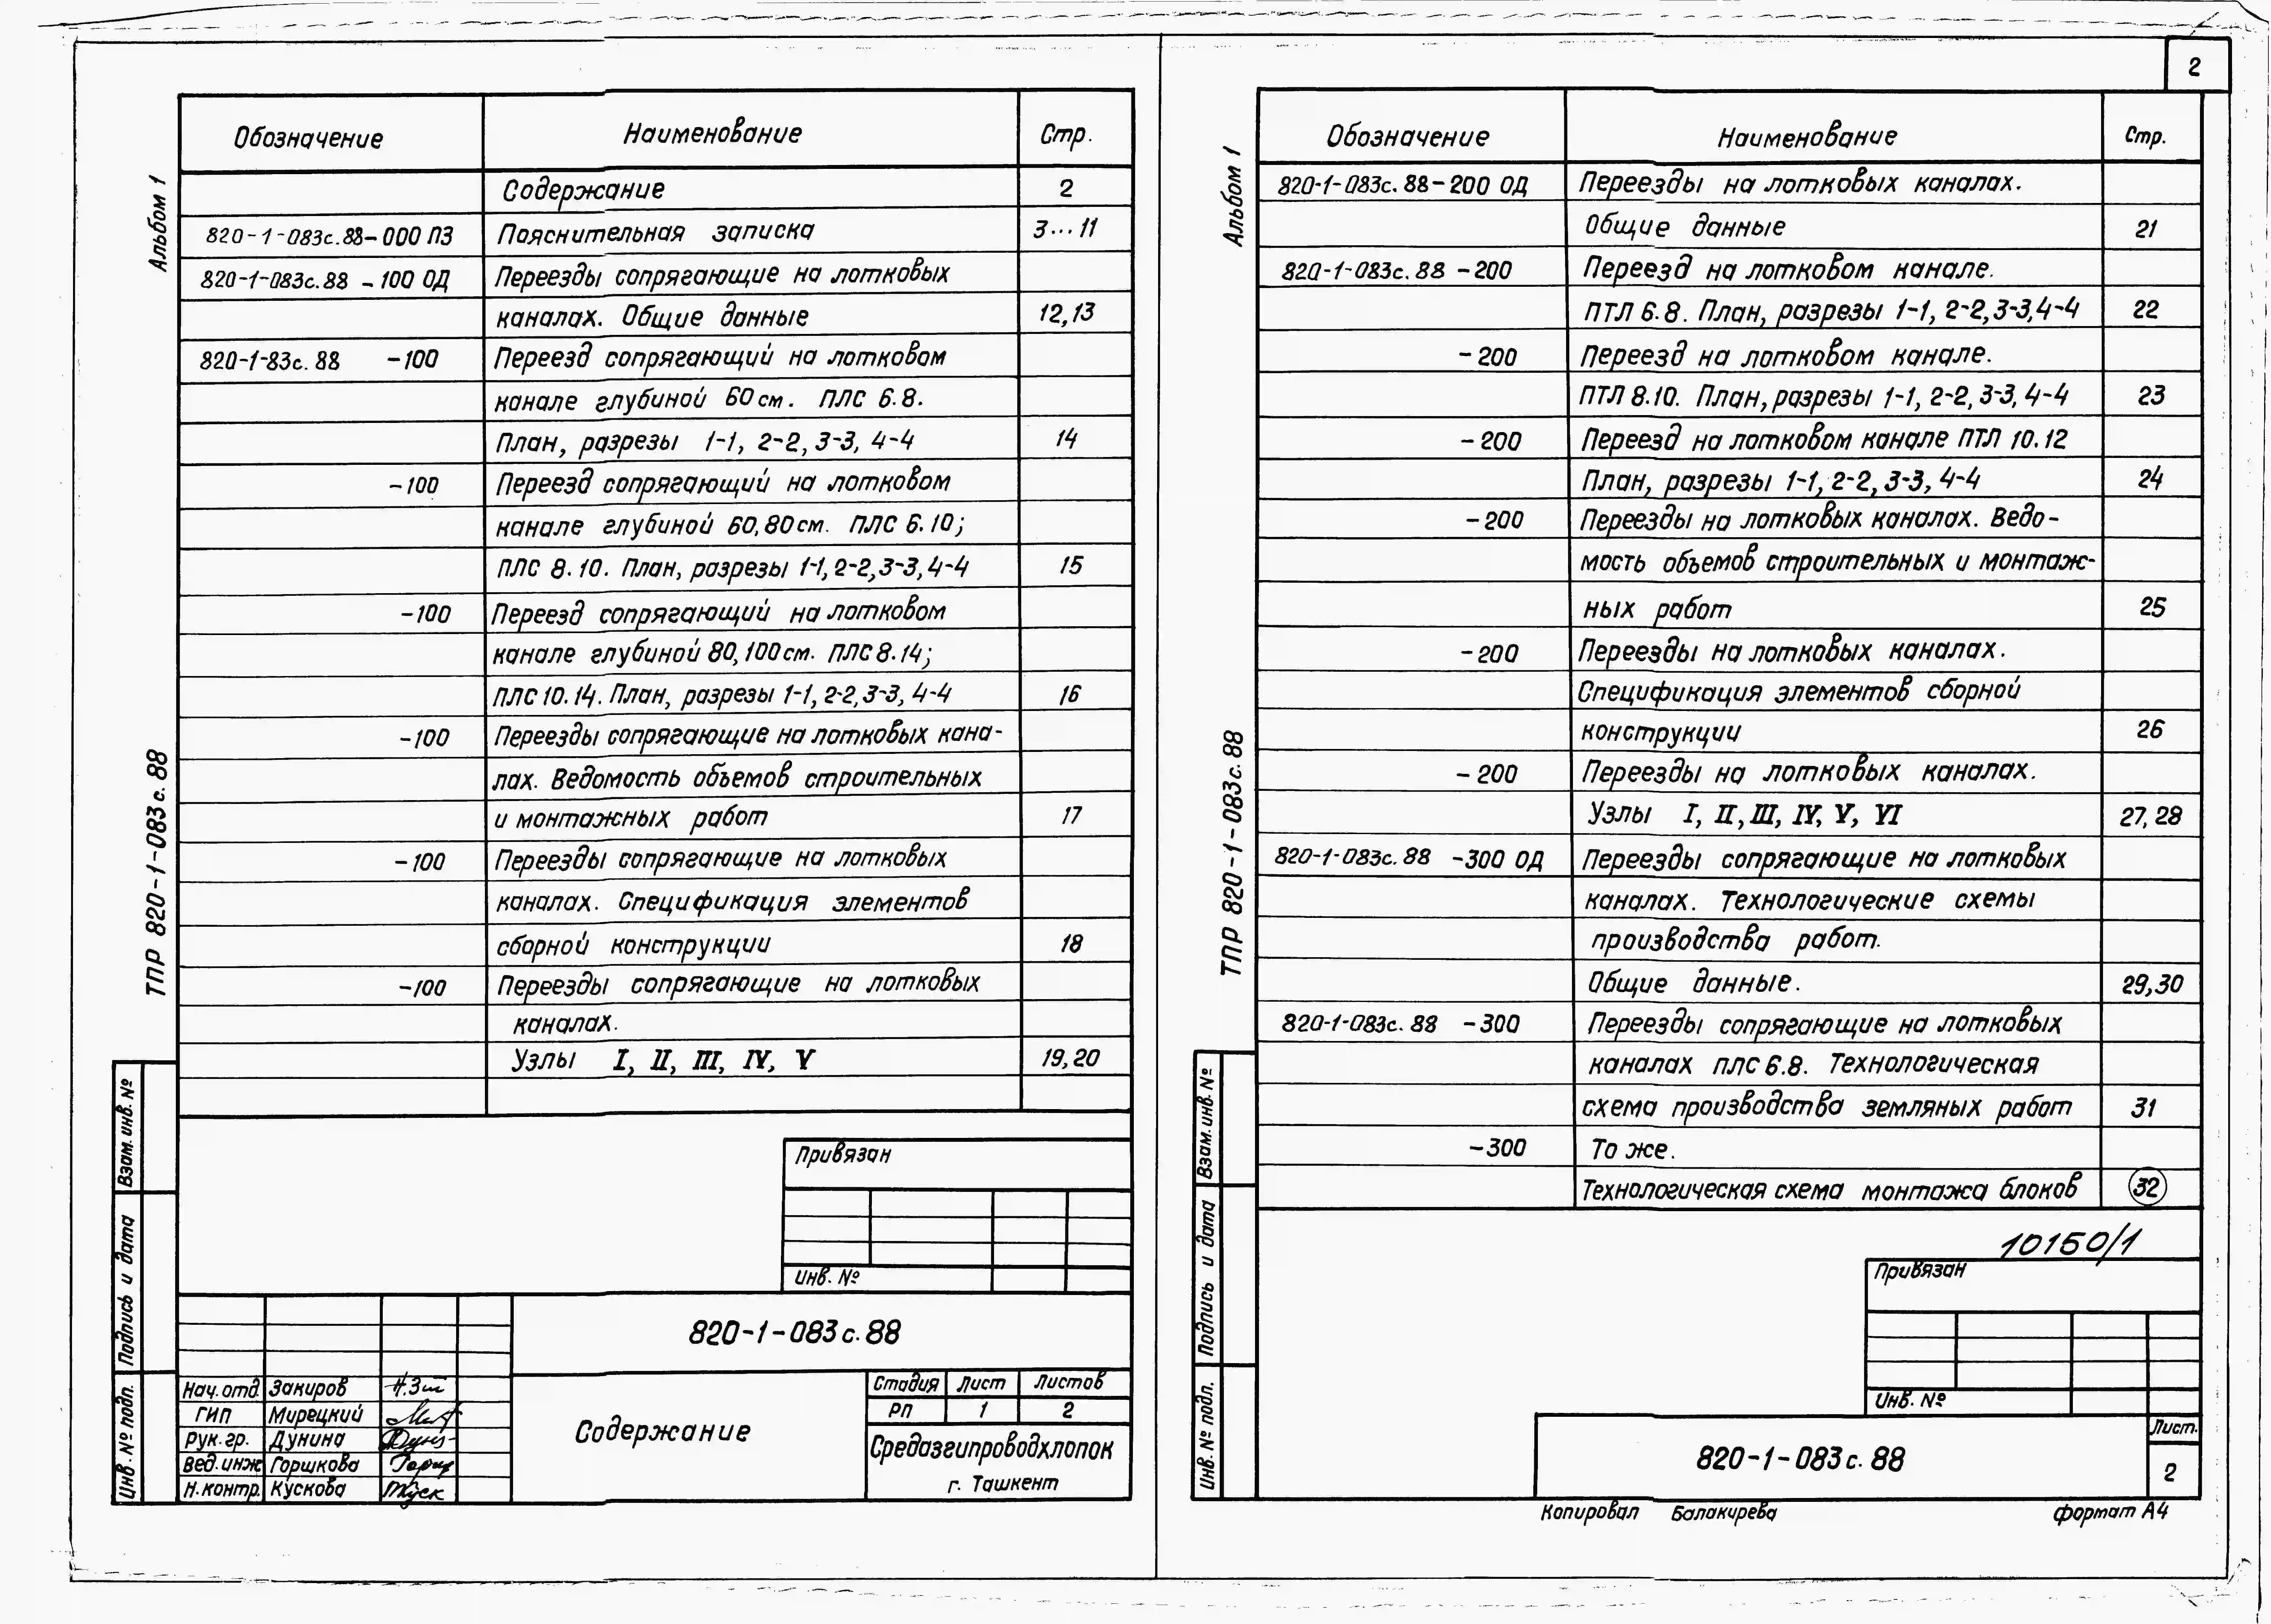 2
Альбом 1
ТПР 820-1-083с.88
Взам. инв. №
Подпись и дата
Инв. № подл.
Обозначение Наименование Стр.
Содержание 2
820-1-083с.88-000 ПЗ Пояснительная записка 3...11
820-1-083с.88 -100 ОД Переезды сопрягающие на лотковых
каналах. Общие данные 12,13
820-1-83с.88 -100 Переезд сопрягающий на лотковом
канале глубиной 60см. ПЛС 6.8.
План, разрезы 1-1, 2-2, 3-3, 4-4 14
-100 Переезд сопрягающий на лотковом
канале глубиной 60,80см. ПЛС 6.10;
ПЛС 8.10. План, разрезы 1-1, 2-2,3-3,4-4 15
-100 Переезд сопрягающий на лотковом
канале глубиной 80,100см. ПЛС 8.14;
ПЛС 10.14. План, разрезы 1-1, 2-2, 3-3, 4-4 16
-100 Переезды сопрягающие на лотковых кана-
лах. Ведомость объемов строительных
и монтажных работ 17
-100 Переезды сопрягающие на лотковых
каналах. Спецификация элементов
сборной конструкции 18
-100 Переезды сопрягающие на лотковых
каналах.
Узлы I, II, III, IV, V 19,20
Привязан
Инв. №
820-1-083с.88
Нач.отд. Закиров
ГИП Мирецкий
Рук.гр. Дунина
Вед.инж Горшкова
Н.контр. Кускова
Содержание
Стадия Лист Листов
РП 1 2
Средазгипроводхлопок
г. Ташкент
Альбом 1
ТПР 820-1-083с.88
Взам. инв. №
Подпись и дата
Инв. № подл.
Обозначение Наименование Стр.
820-1-083с.88-200 ОД Переезды на лотковых каналах.
Общие данные 21
820-1-083с.88 -200 Переезд на лотковом канале.
ПТЛ 6.8. План, разрезы 1-1, 2-2,3-3,4-4 22
-200 Переезд на лотковом канале.
ПТЛ 8.10. План, разрезы 1-1, 2-2, 3-3, 4-4 23
-200 Переезд на лотковом канале ПТЛ 10.12
План, разрезы 1-1, 2-2, 3-3, 4-4 24
-200 Переезды на лотковых каналах. Ведо-
мость объемов строительных и монтаж-
ных работ 25
-200 Переезды на лотковых каналах.
Спецификация элементов сборной
конструкции 26
-200 Переезды на лотковых каналах.
Узлы I, II, III, IV, V, VI 27,28
820-1-083с.88 -300 ОД Переезды сопрягающие на лотковых
каналах. Технологические схемы
производства работ.
Общие данные. 29,30
820-1-083с.88 -300 Переезды сопрягающие на лотковых
каналах ПЛС 6.8. Технологическая
схема производства земляных работ 31
-300 То же.
Технологическая схема монтажа блоков 32
10150/1
Привязан
Инв. №
820-1-083с.88
Лист.
2
Копировал Балакирева формат А4